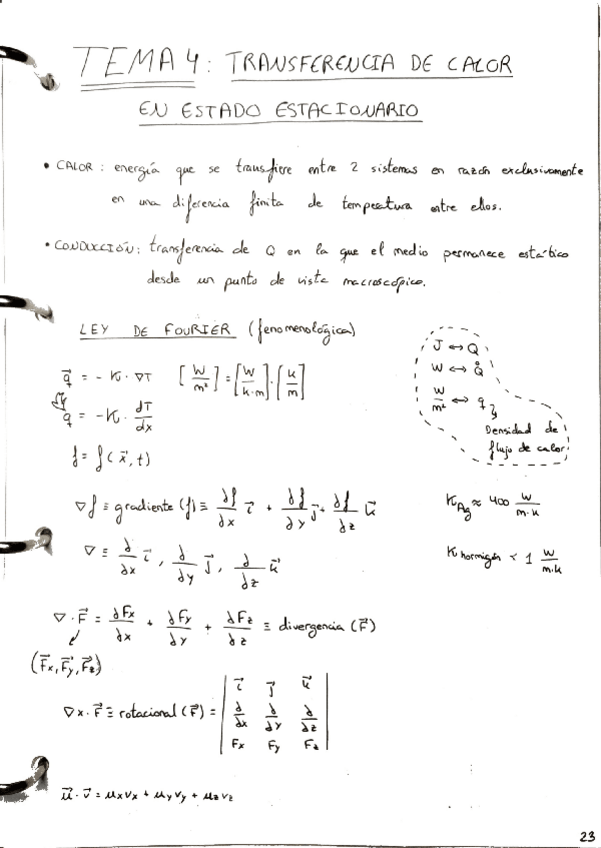 TEMA 4: TRANSFERENCIA DE CALOR
EN ESTADO ESTACIONARIO
• CALOR: energía que se transfiere entre 2 sistemas en razón exclusivamente
en una diferencia finita de temperatura entre ellos.
• CONDUCCIÓN: transferencia de Q en la que el medio permanece estático
desde un punto de vista macroscópico.
LEY DE FOURIER (fenomenológica)
J ↔ Q
W ↔ Q̊
W/m² ↔ q
Densidad de
flujo de calor
q⃗ = - K · ∇T [W/m²] = [W/k·m] · [k/m]
q = - K · dT/dx
f = f(x⃗, t)
∇f ≡ gradiente (f) ≡ ∂f/∂x i⃗ + ∂f/∂y j⃗ + ∂f/∂z k⃗
K Ag ≈ 400 W/m·k
∇ ≡ ∂/∂x i⃗, ∂/∂y j⃗, ∂/∂z k⃗
K hormigón < 1 W/m·k
∇ · F⃗ = ∂Fx/∂x + ∂Fy/∂y + ∂Fz/∂z ≡ divergencia (F⃗)
(F⃗x, F⃗y, F⃗z)
∇ x · F⃗ ≡ rotacional (F⃗) = | i⃗ j⃗ k⃗ |
| ∂/∂x ∂/∂y ∂/∂z |
| Fx Fy Fz |
u⃗ · v⃗ = uxvx + uyvy + uzvz
23